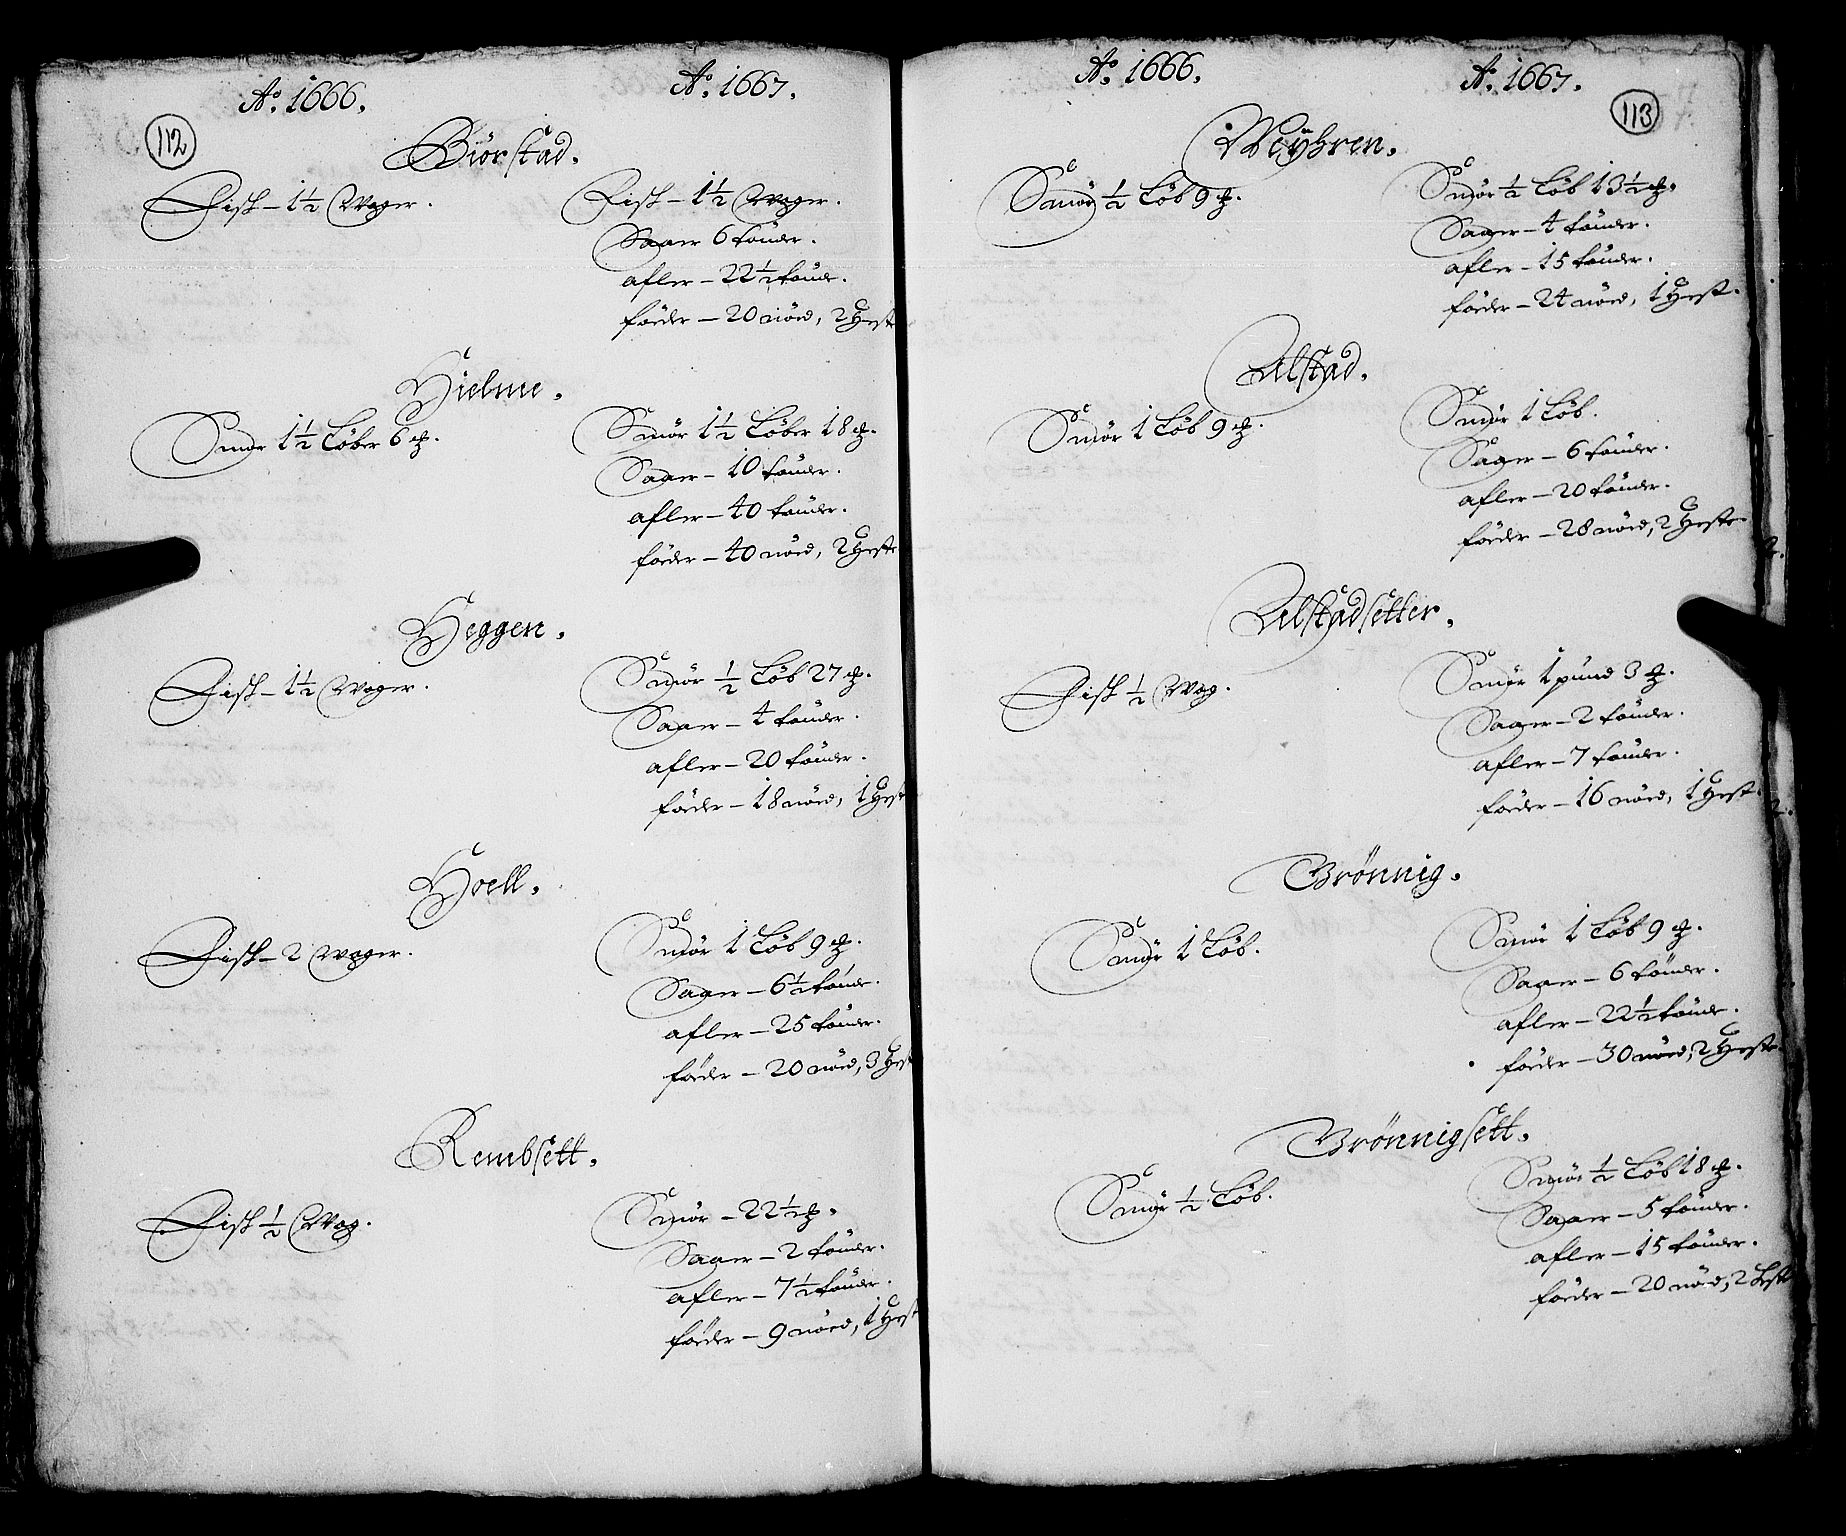 112
Ao. 1666.
Ao. 1667.
Biørstad.
Fisk – 1½ Woger.
Fisk – 1½ Woger.
Saaer 6 tønder.
afler – 22½ tønde.
føder – 20 nød, 2 Heste
Hielme.
Smør 1½ Løber 6 ꝑ.
Smør 1½ Løber 18 ꝑ.
Saaer – 10 tønder.
afler – 40 tønder.
føder – 40 nød, 2 Heste
Heggen.
Fisk – 1½ Woger.
Smør ½ Løb 27 ꝑ.
Saaer – 4 tønder.
afler – 20 tønder.
føder – 18 nød, 1 Hest
Hoell.
Fisk – 2 Woger.
Smør 1 Løb 9 ꝑ.
Saaer – 6½ tønde.
afler – 25 tønder.
føder – 20 nød, 3 Hest
Rembsett.
Fisk ½ Wog.
Smør – 22½ ꝑ.
Saaer – 2 tønder.
afler – 7½ tønder.
føder – 9 nød, 1 Hest
113
Ao. 1666.
Ao. 1667.
Meyhren.
Smør ½ Løb 9 ꝑ.
Smør ½ Løb 13½ ꝑ.
Saaer – 4 tønder.
afler – 15 tønder.
føder – 24 nød, 1 Hest.
Ulstad.
Smør 1 Løb 9 ꝑ.
Smør 1 Løb.
Saaer – 6 tønder.
afler – 20 tønder.
føder – 28 nød, 2 Heste
Ulstadsetter.
Fisk ½ Wog.
Smør 1 pund 3 ꝑ.
Saaer – 2 tønder.
afler – 7 tønder.
føder – 16 nød, 1 Hest.
Brønnig.
Smør 1 Løb.
Smør 1 Løb 9 ꝑ.
Saaer – 6 tønder.
afler – 22½ tønde.
føder – 30 nød, 2 Heste
Brønnigsett.
Smør ½ Løb.
Smør ½ Løb 18 ꝑ.
Saaer – 5 tønder.
afler – 15 tønder.
føder – 20 nød, 2 Hest